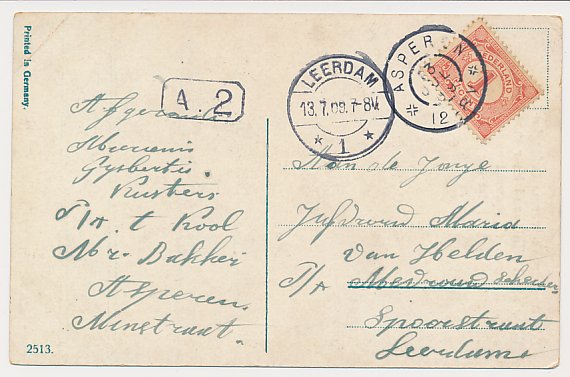 Printed in Germany.
A 2
LEERDAM
13.7.09.7-8V.
* 1 *
ASPEREN
12
NEDERLAND
1
Gysbertis
Kusters
P/a. t Kool
Mr. Bakker
Asperen
Minstraat.
2513.
Aan de Jonge
Jufvrouw Maria
van Helden
P/a
Spoorstraat
Leerdam